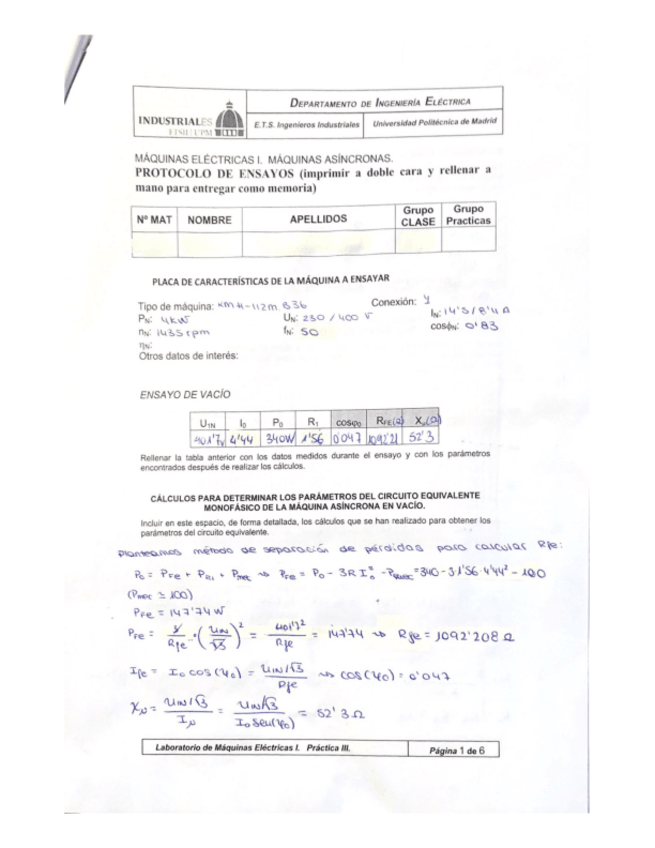 DEPARTAMENTO DE INGENIERÍA ELÉCTRICA
INDUSTRIALES
ETSII | UPM
E.T.S. Ingenieros Industriales
Universidad Politécnica de Madrid
MÁQUINAS ELÉCTRICAS I. MÁQUINAS ASÍNCRONAS.
PROTOCOLO DE ENSAYOS (imprimir a doble cara y rellenar a
mano para entregar como memoria)
Nº MAT NOMBRE APELLIDOS Grupo CLASE Grupo Practicas
PLACA DE CARACTERÍSTICAS DE LA MÁQUINA A ENSAYAR
Tipo de máquina: KM4-112M B36 Conexión: Y
PN: 4kW UN: 230 / 400 V IN: 14'5/8'4 A
nN: 1435 rpm fN: 50 cosφN: 0'83
ηN:
Otros datos de interés:
ENSAYO DE VACÍO
U1N I0 P0 R1 cosφ0 RFE(Ω) Xμ(Ω)
401'7V 4'44 340W 1'56 0'047 1092'21 52'3
Rellenar la tabla anterior con los datos medidos durante el ensayo y con los parámetros
encontrados después de realizar los cálculos.
CÁLCULOS PARA DETERMINAR LOS PARÁMETROS DEL CIRCUITO EQUIVALENTE
MONOFÁSICO DE LA MÁQUINA ASÍNCRONA EN VACÍO.
Incluir en este espacio, de forma detallada, los cálculos que se han realizado para obtener los
parámetros del circuito equivalente.
Planteamos método de separación de pérdidas para calcular Rfe:
P0 = PFe + PR1 + Pmec ⇒ PFe = P0 - 3RI0² - Pmec = 340 - 3·1'56·4'44² - 100
(Pmec ≃ 100)
PFe = 147'74 W
PFe = 3/Rfe · (U1N/√3)² = 401'7²/Rfe = 147'74 ⇒ Rfe = 1092'208 Ω
Ife = I0 cos(φ0) = U1N/√3 / Rfe ⇒ cos(φ0) = 0'047
Xμ = U1N/√3 / Iμ = U1N/√3 / I0 sen(φ0) = 52'3 Ω
Laboratorio de Máquinas Eléctricas I. Práctica III. Página 1 de 6